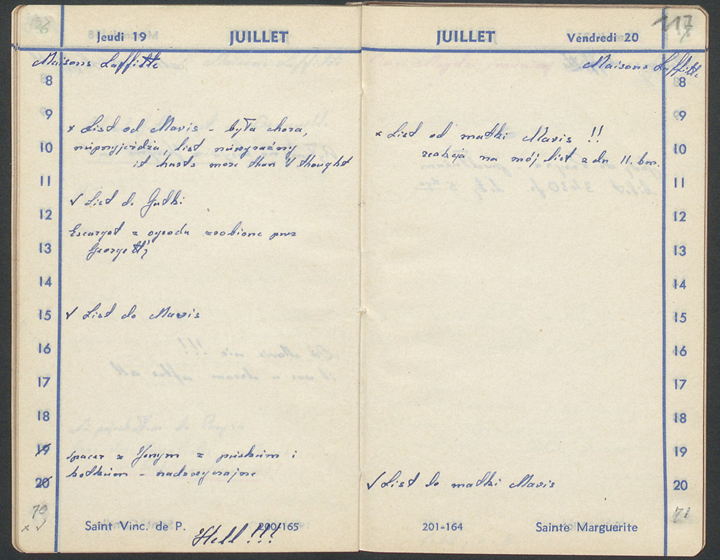 Jeudi 19 JUILLET
Maisons Laffitte
8
9
x List od Mavis - była chora,
10
nieprzyjeżdża, list niewyraźny
it hurts more than I thought
11
√ List do Gutki
12
Escargot z ogrodu zrobione przez
13
Georgette'ę
14
15
√ List do Mavis
16
17
18
19
spacer z Jerzym z pieskiem i
20
kotkiem - nadzwyczajne
70
x √
Saint Vinc. de P. 200/165
Hell!!!
JUILLET Vendredi 20
117
Maisons Laffitte
8
9
x List od matki Mavis !!
10
reakcja na mój list z dn. 11. bm.
11
12
13
14
15
16
17
18
19
20
√ List do matki Mavis
71
201-164 Sainte Marguerite